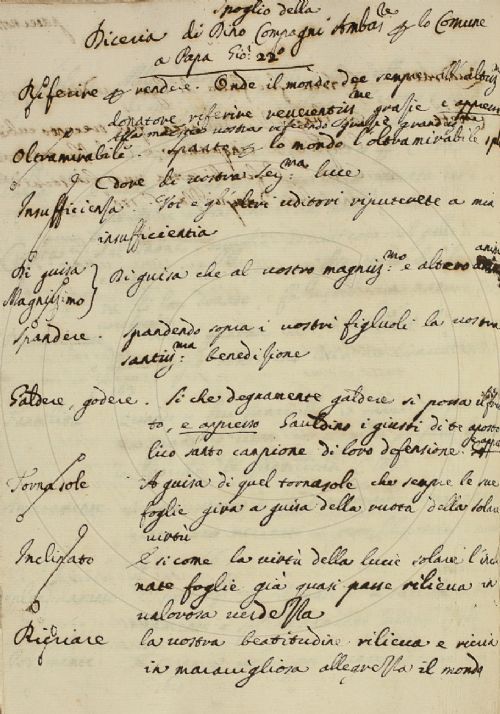 Spoglio della
Diceria di Dino Compagni Ambas.re p lo Comune
a Papa Gio: 22º
Riferire p rendere. Onde il mondo dee sempre all'altiss.
donatore riferire reverentiss.me grasie e appresso
alla maestà vostra referendo grasie grandiss.me
Oltramirabile. Spante p lo mondo l'oltramirabile spl
dore di vostra Seg.ma luce
Insufficiensa Tot e gl'altri uditori riputerete a mia
insufficientia
Di guisa
Magniss:mo
Di guisa che al vostro magniss:mo e altero animo
Spandere. Spandendo sopra i vostri figluoli la vostra
santiss:ma benedisione
Galdere, godere. Si che degnamente galdere si possa
to, e appresso Gauldino i giusti di te aposto
lico santo campione di loro defensione.
Tornasole A guisa di quel tornasole che sempre le sue
foglie gira a guisa della ruota della solare
virtù
Inclinato E si come la virtù della luce solare l'incli
nate foglie già quasi passe rilieva in
valorosa verdessa
Ricriare la vostra beatitudine rilieva e ricria
in maravigliosa allegressa il mondo